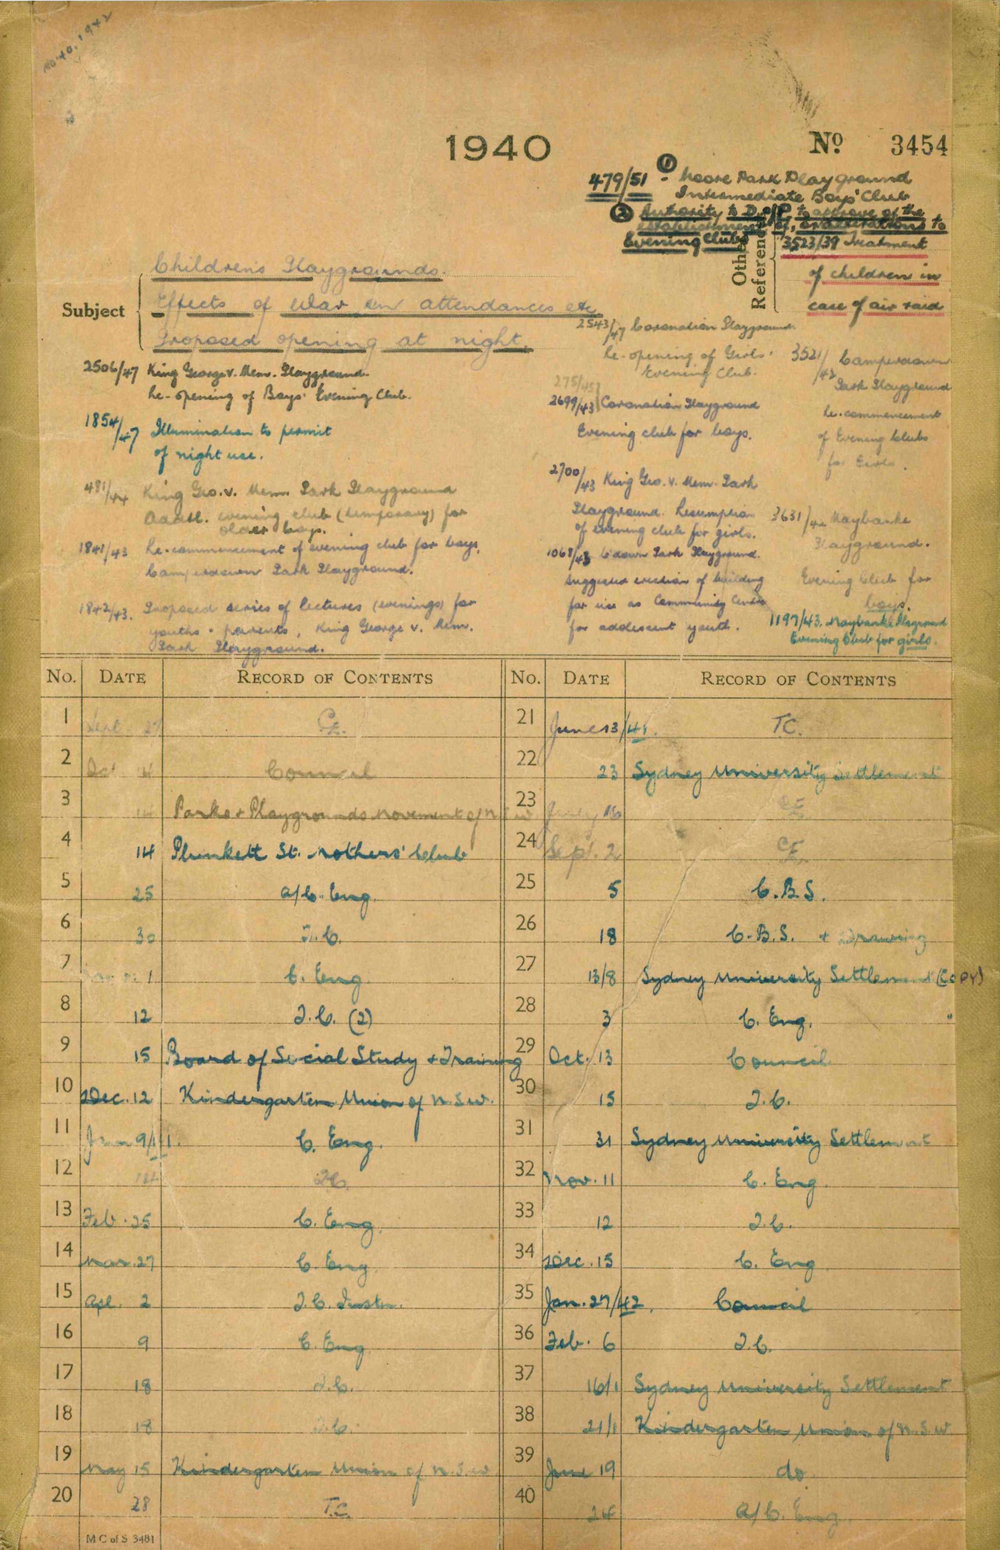 1940
No 3454
479/51 - ① Moore Park Playground
Intermediate Boys' Club
② Authority to D. of P. to approve of the
establishment of, or alterations to
Evening Clubs
Other References
3523/39 Treatment
of children in
case of air raid
Subject
Children's Playgrounds.
Effects of War on attendances etc
Proposed opening at night.
2506/47 King George V. Mem. Playground.
Re-opening of Boys' Evening Club.
1854/47 Illumination to permit
of night use.
481/44 King Geo. V. Mem. Park Playground
Addtl. evening club (temporary) for
older boys.
1841/43 Re-commencement of evening club for boys,
Camperdown Park Playground.
1842/43. Proposed series of lectures (evenings) for
youths + parents, King George V. Mem.
Park Playground.
2543/47 Coronation Playground
Re-opening of Girls'
Evening Club.
2699/43 Coronation Playground
Evening club for boys.
2700/43 King Geo. V. Mem. Park
Playground. Resumption
of evening club for girls.
1068/43 Playground.
Suggested erection of building
for use as Community Centre
for adolescent youth.
3521/42 Camperdown
Park Playground
Re-commencement
of Evening Clubs
for Girls.
3631/42 Maybanke
Playground.
Evening Club for
boys.
1197/43. Maybanke Playground
Evening Club for girls.
No. DATE RECORD OF CONTENTS
1 Sept. 27 CE.
2 Oct. Council
3 14 Parks + Playgrounds Movement of N.S.W
4 14 Plunkett St. Mothers' Club
5 25 A/C. Eng.
6 30 T.C.
7 1 C. Eng
8 12 T.C. (2)
9 15 Board of Social Study + Training
10 Dec. 12 Kindergarten Union of N.S.W.
11 Jan 9/41. C. Eng.
12 14 T.C.
13 Feb. 25 C. Eng.
14 Mar. 27 C. Eng
15 Apl. 2 T.C. Instn.
16 9 C. Eng
17 18 T.C.
18 18 T.C.
19 May 15 Kindergarten Union of N.S.W
20 28 T.C.
M C of S 3481
No. DATE RECORD OF CONTENTS
21 June 13/41. T.C.
22 23 Sydney University Settlement
23 July 16 CE
24 Sept. 2 CE.
25 5 C.B.S.
26 18 C.B.S. + Drawing
27 13/8 Sydney University Settlement (Copy)
28 3 C. Eng.
29 Oct. 13 Council
30 15 T.C.
31 31 Sydney University Settlement
32 Nov. 11 C. Eng
33 12 T.C.
34 Dec. 15 C. Eng
35 Jan. 27/42. Council
36 Feb. 6 T.C.
37 16/1 Sydney University Settlement
38 21/1 Kindergarten Union of N.S.W
39 June 19 do
40 24 A/C. Eng.